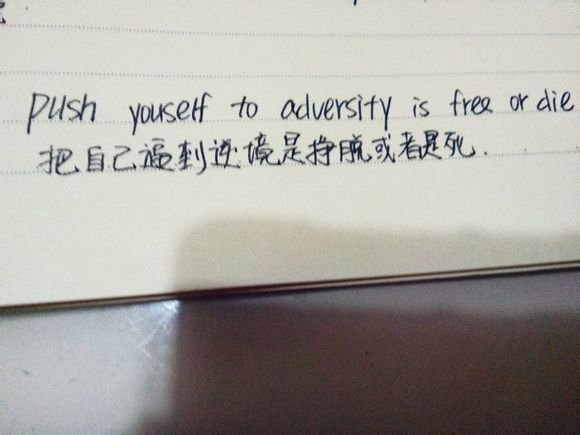 push youself to adversity is free or die
把自己逼到逆境是挣脱或者是死.